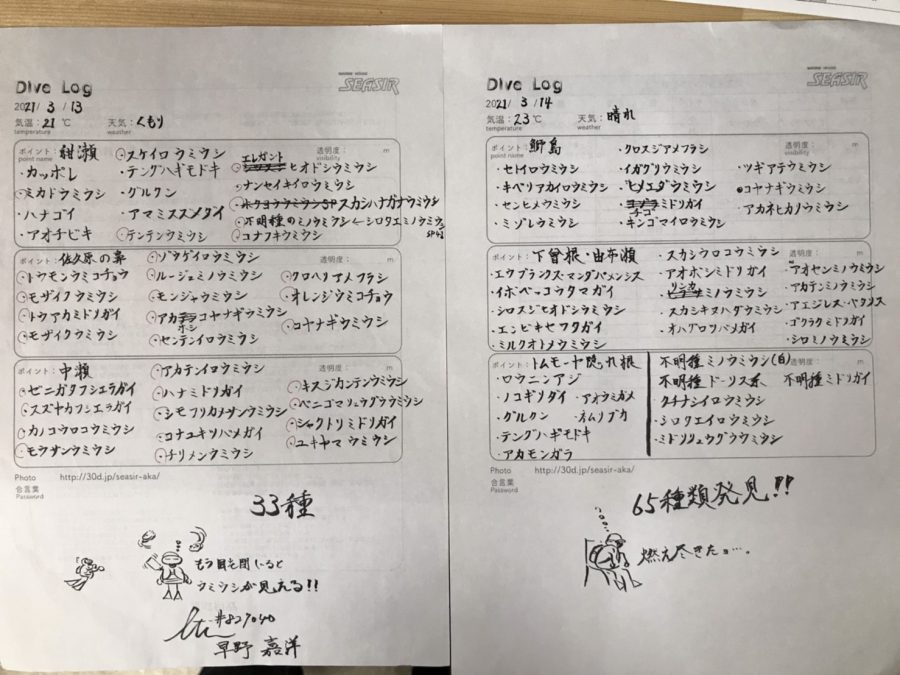 Dive Log
MARINE HOUSE SEASIR
2021/ 3 / 13
気温：21℃ 天気：くもり
temperature weather
ポイント：紺瀬 透明度： m
point name visibility
・カッポレ
・ミカドウミウシ
・ハナゴイ
・アオチビキ
・スケイロウミウシ
・テングハギモドキ
・グルクン
・アマミスズメダイ
・テンテンウミウシ
エレガント
ヒオドシウミウシ
・ナンセイキイロウミウシ
・ホクヨウウミウシSP スカシハナガサウミウシ
・不明種のミノウミウシ←シロタエミノウミウシ
SP4
・コナフキウミウシ
ポイント：佐久原の鼻 透明度： m
・トウモンウミコチョウ
・モザイクウミウシ
・トウアカミドリガイ
・モザイクウミウシ
・ゾウゲイロウミウシ
・ルージュミノウミウシ
・モンジャウミウシ
・アカボシコヤナギウミウシ
・センテンイロウミウシ
・クロヘリアメフラシ
・オレンジウミコチョウ
・コヤナギウミウシ
ポイント：中瀬 透明度： m
・ゼニガタフシエラガイ
・スズヤカフシエラガイ
・カノコウロコウミウシ
・モウサンウミウシ
・アカテンイロウミウシ
・ハナミドリガイ
・シモフリカメサンウミウシ
・コナユキツバメガイ
・チリメンウミウシ
・キスジカンテンウミウシ
・ベニゴマリュウグウウミウシ
・シャクトリミドリガイ
・ユキヤマウミウシ
Photo http://30d.jp/seasir-aka/
合言葉
Password
33種
もう目を閉じると
ウミウシが見える!!
#827040
早野 嘉洋
Dive Log
MARINE HOUSE SEASIR
2021/ 3 / 14
気温：23℃ 天気：晴れ
temperature weather
ポイント：鰤島 透明度： m
point name visibility
・セトイロウミウシ
・キベリアカイロウミウシ
・センヒメウミウシ
・ミゾレウミウシ
・クロスジアメフラシ
・イガグリウミウシ
・ヒメエダウミウシ
・チゴミドリガイ
・キンゴマイロウミウシ
・ツギアテウミウシ
・コヤナギウミウシ
・アカネヒカノコウミウシ
ポイント：下曽根・由布瀬 透明度： m
・エウブランクス・マンダパメンシス
・イボベッコウタマガイ
・シロスジヒオドシウミウシ
・エンビキセワタガイ
・ミルクオトメウミウシ
・スカシウロコウミウシ
・アオボシミドリガイ
リンカ
ミノウミウシ
・スカシキヌハダウミウシ
・オハグロツバメガイ
・アオセンミノウミウシ
・アカテンミノウミウシ
・アエジレス・ヤタメス
・ゴクラクミドリガイ
・シロミノウミウシ
ポイント：トムモーヤ隠れ根 透明度： m
・ロウニンアジ
・ノコギリダイ
・グルクン
・テングハギモドキ
・アカモンガラ
・アオウミガメ
・ネムリブカ
不明種ミノウミウシ(白)
不明種ドーリス系
・クチナシイロウミウシ
・シロタエイロウミウシ
・ミドリリュウグウウミウシ
不明種ミドリガイ
Photo http://30d.jp/seasir-aka/
合言葉
Password
65種類発見!!
燃え尽きたョ…。